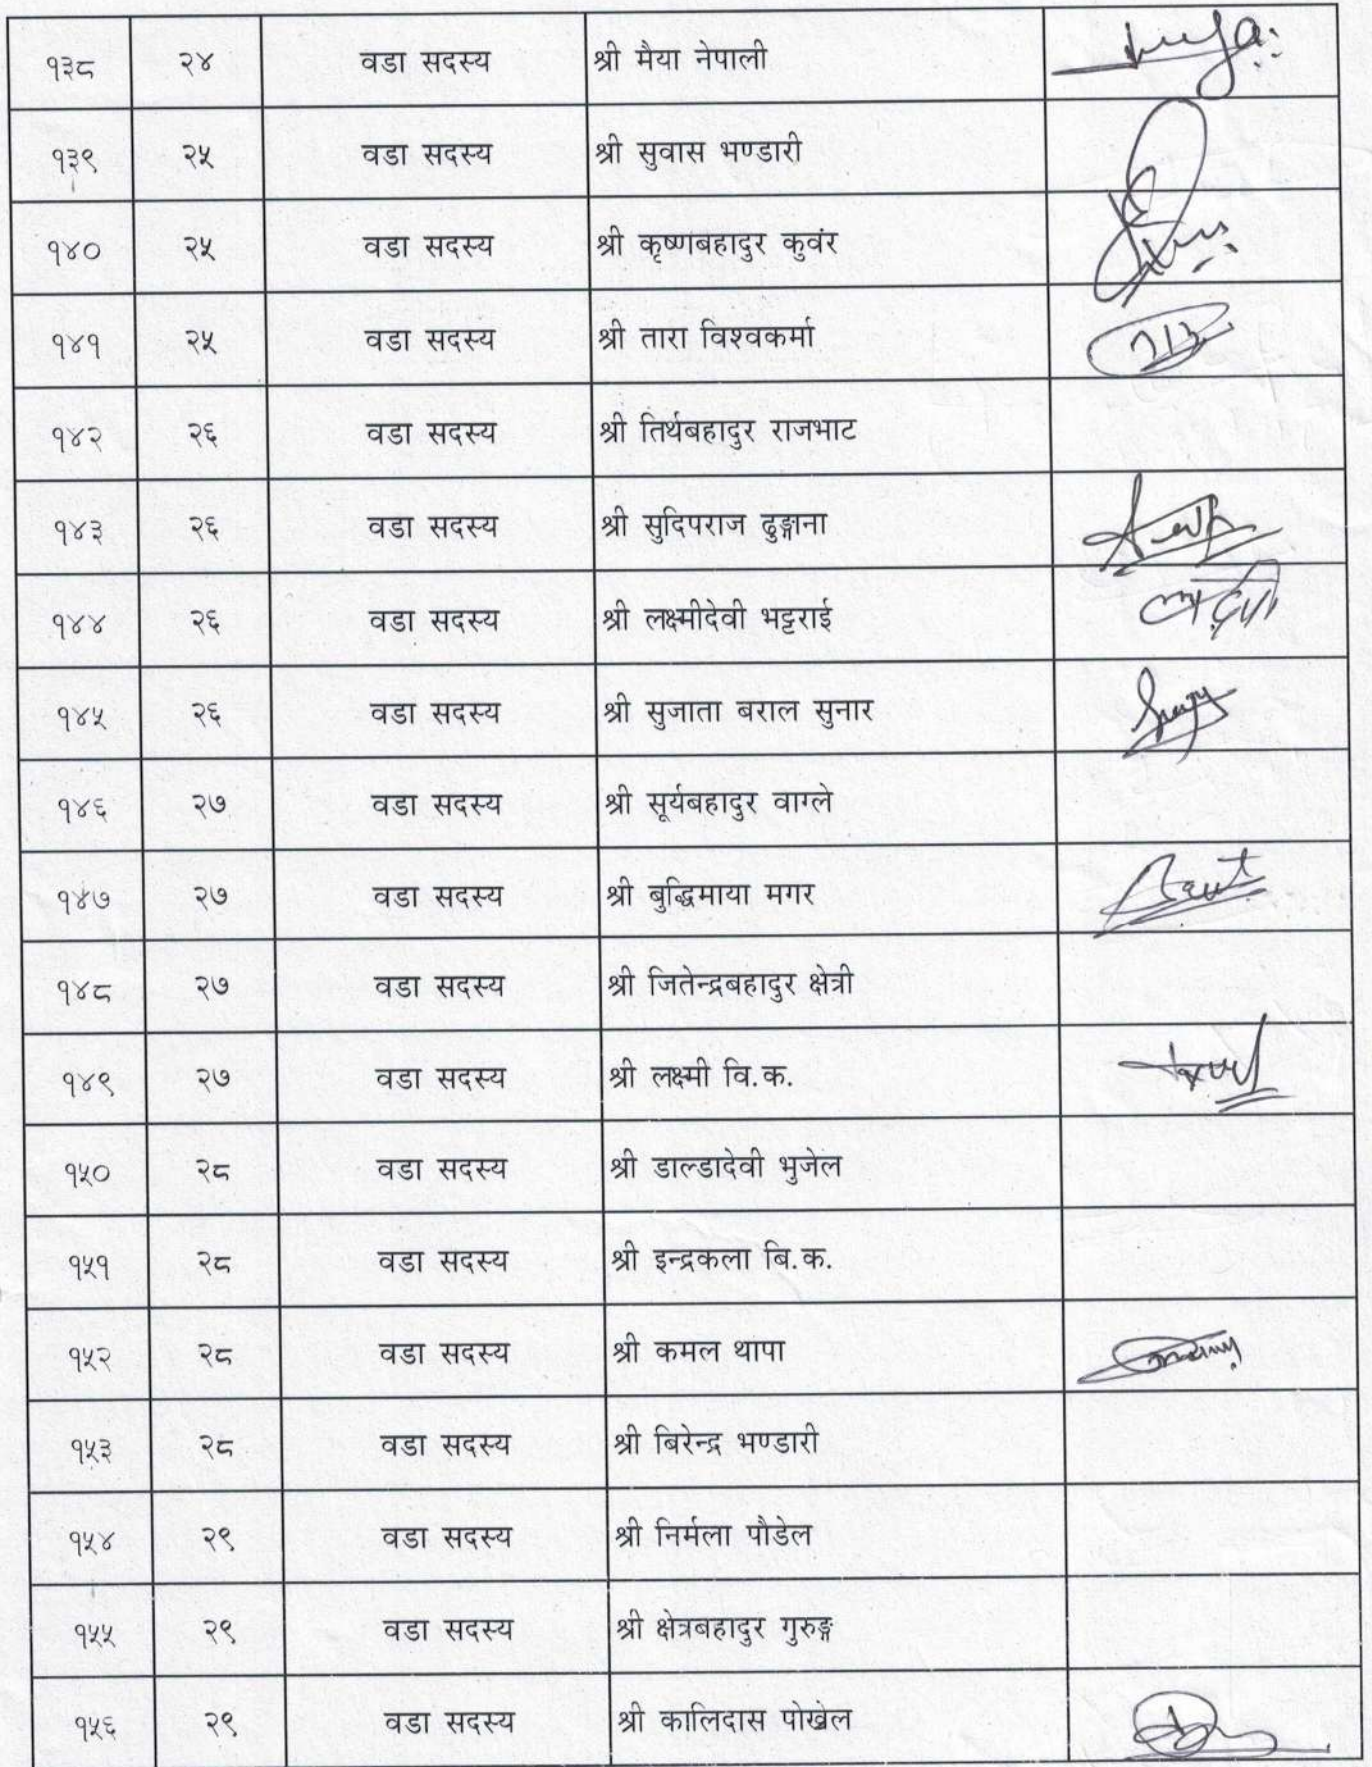 १३८ २४ वडा सदस्य श्री मैया नेपाली
१३९ २५ वडा सदस्य श्री सुवास भण्डारी
१४० २५ वडा सदस्य श्री कृष्णबहादुर कुवंर
१४१ २५ वडा सदस्य श्री तारा विश्वकर्मा
१४२ २६ वडा सदस्य श्री तिर्थबहादुर राजभाट
१४३ २६ वडा सदस्य श्री सुदिपराज ढुङ्गाना
१४४ २६ वडा सदस्य श्री लक्ष्मीदेवी भट्टराई
१४५ २६ वडा सदस्य श्री सुजाता बराल सुनार
१४६ २७ वडा सदस्य श्री सूर्यबहादुर वाग्ले
१४७ २७ वडा सदस्य श्री बुद्धिमाया मगर
१४८ २७ वडा सदस्य श्री जितेन्द्रबहादुर क्षेत्री
१४९ २७ वडा सदस्य श्री लक्ष्मी वि.क.
१५० २८ वडा सदस्य श्री डाल्डादेवी भुजेल
१५१ २८ वडा सदस्य श्री इन्द्रकला बि.क.
१५२ २८ वडा सदस्य श्री कमल थापा
१५३ २८ वडा सदस्य श्री बिरेन्द्र भण्डारी
१५४ २९ वडा सदस्य श्री निर्मला पौडेल
१५५ २९ वडा सदस्य श्री क्षेत्रबहादुर गुरुङ्ग
१५६ २९ वडा सदस्य श्री कालिदास पोखेल